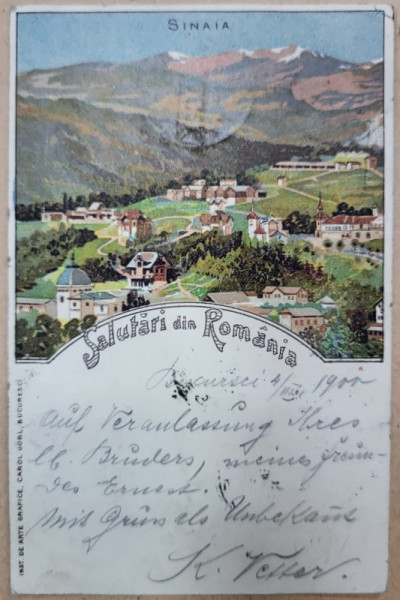 SINAIA
Salutări din România
Bucuresci 4/VIII 1900
Auf Veranlassung Ihres
lb. Bruders, meines Freun-
des Ernest.
Mit Gruss als Unbekannt
K. Vetter.
INST. DE ARTE GRAFICE, CAROL GÖBL, BUCURESCI